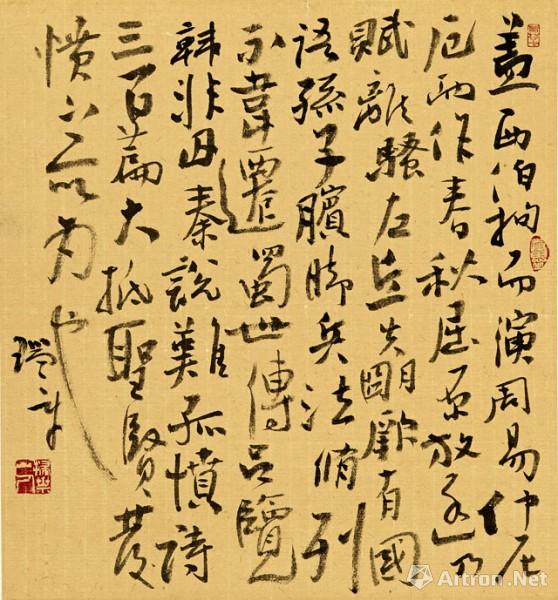 蓋西伯拘而演周易仲尼
厄而作春秋屈原放逐乃
賦離騷左丘失明厥有國
語孫子臏脚兵法脩列
不韋遷蜀世傳呂覽
韓非囚秦說難孤憤詩
三百篇大抵聖賢發
憤之所为也
Artron.Net